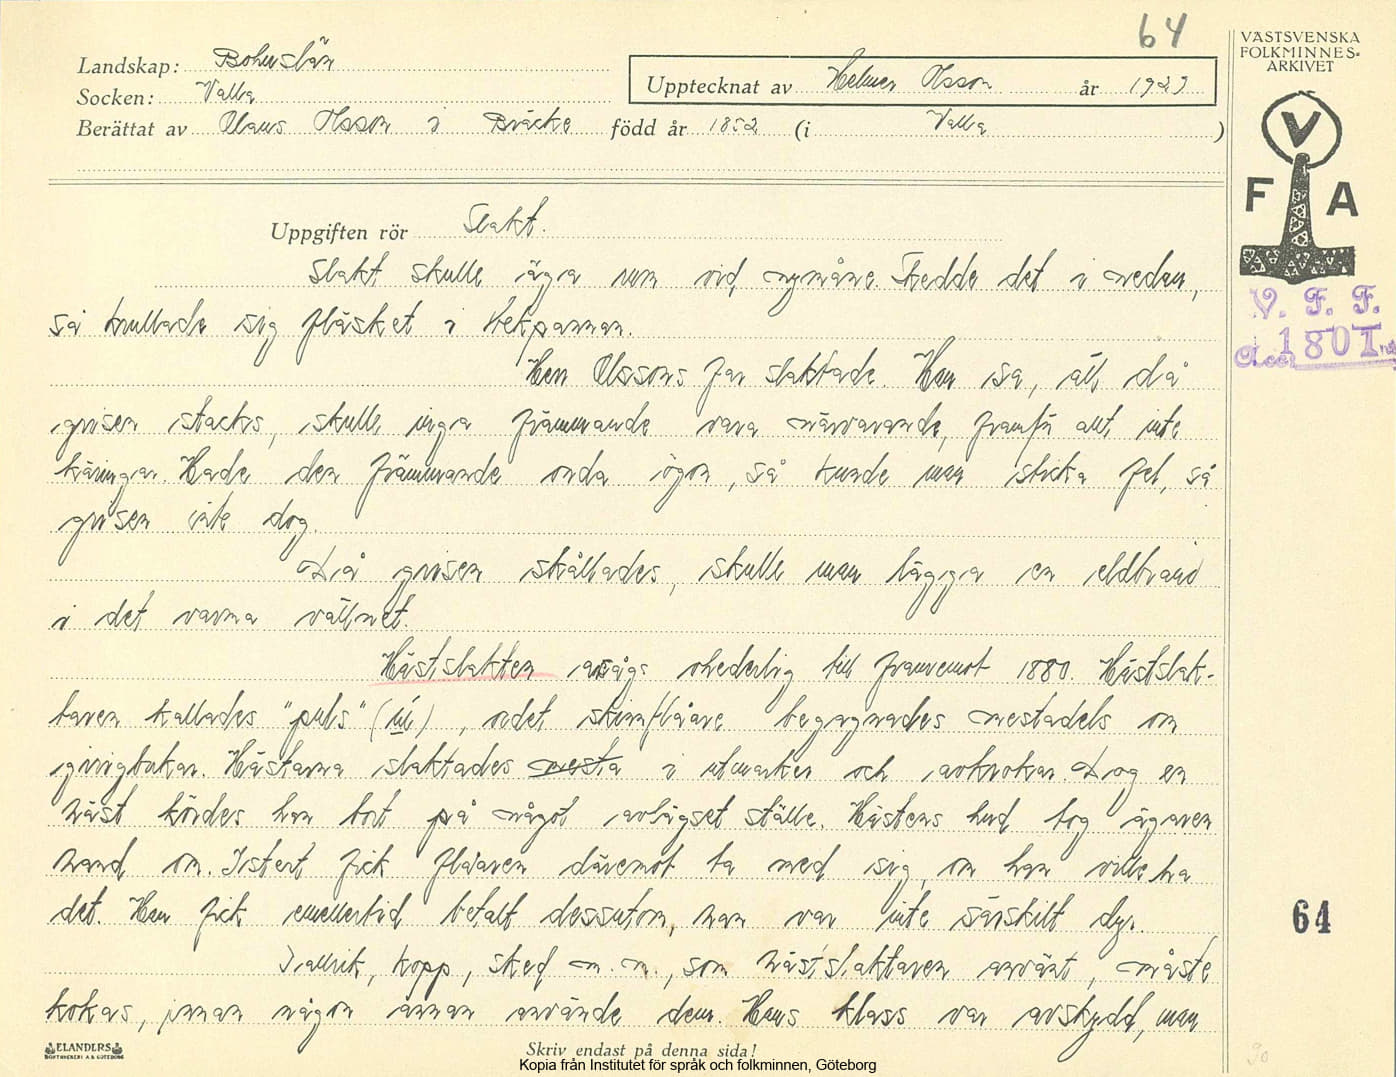 64
VÄSTSVENSKA
FOLKMINNES-
ARKIVET
Landskap: Bohuslän
Socken: Valla
Upptecknat av Helmer Olsson år 1923
Berättat av Claus Olsson i Bräcke född år 1852 (i Valla)
V
F A
V. F. F.
Acc. 1801
Uppgiften rör Slakt.
Slakt skulle äga rum vid nymåne. Skedde det i nedan,
så krullade sig fläsket i stekpannan.
Herr Olssons far slaktade. Han sa, att då
grisen stacks, skulle inga främmande vara närvarande, framför allt inte
käringar. Hade den främmande onda ögon, så kunde man sticka fel, så
grisen inte dog.
Då grisen skållades, skulle man lägga en eldbrand
i det varma vattnet.
Hästslakten ansågs ohederlig till framemot 1880. Hästslak-
taren kallades "puls" (ul), ordet skinnflåare begagnades mestadels om
girigbukar. Hästarna slaktades mesta i utmarker och avkrokar. Dog en
häst kördes han bort på något avlägset ställe. Hästens hud tog ägaren
hand om. Istert fick flåaren däremot ta med sig, om han ville ha
det. Han fick emellertid betalt dessutom, han var inte särskilt dyr.
Tallrik, kopp, sked m.m., som hästslaktaren använt, måste
kokas, innan någon annan använde dem. Hans klass var avskydd, man
64
ELANDERS
BOKTRYCKERI A.B. GÖTEBORG
Skriv endast på denna sida!
Kopia från Institutet för språk och folkminnen, Göteborg